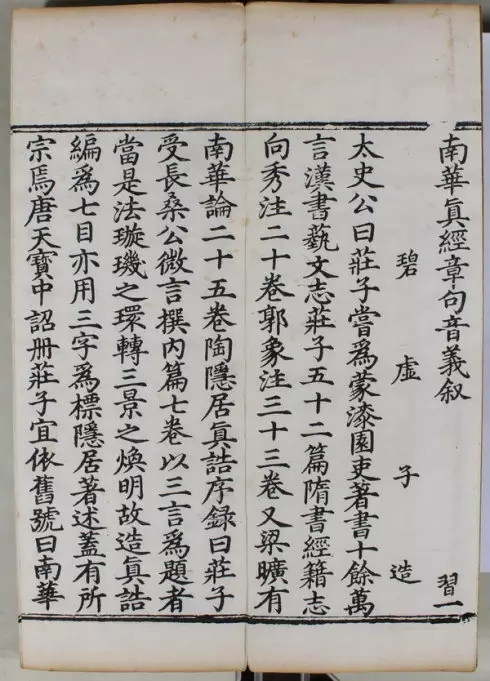 南華眞經章句音義叙　習一
碧虛子造
太史公曰莊子嘗爲蒙漆園吏著書十餘萬
言漢書藝文志莊子五十二篇隋書經籍志
向秀注二十卷郭象注三十三卷又梁曠有
南華論二十五卷陶隱居眞誥序録曰莊子
受長桑公微言撰內篇七卷以三言爲題者
當是法璇璣之環轉三景之煥明故造眞誥
編爲七目亦用三字爲標隱居著述蓋有所
宗焉唐天寶中詔册莊子宜依舊號曰南華